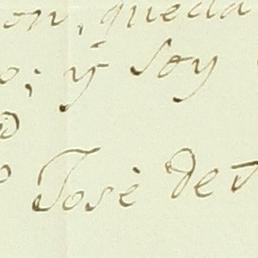 on, queda
o; ÿ soy
Josè de